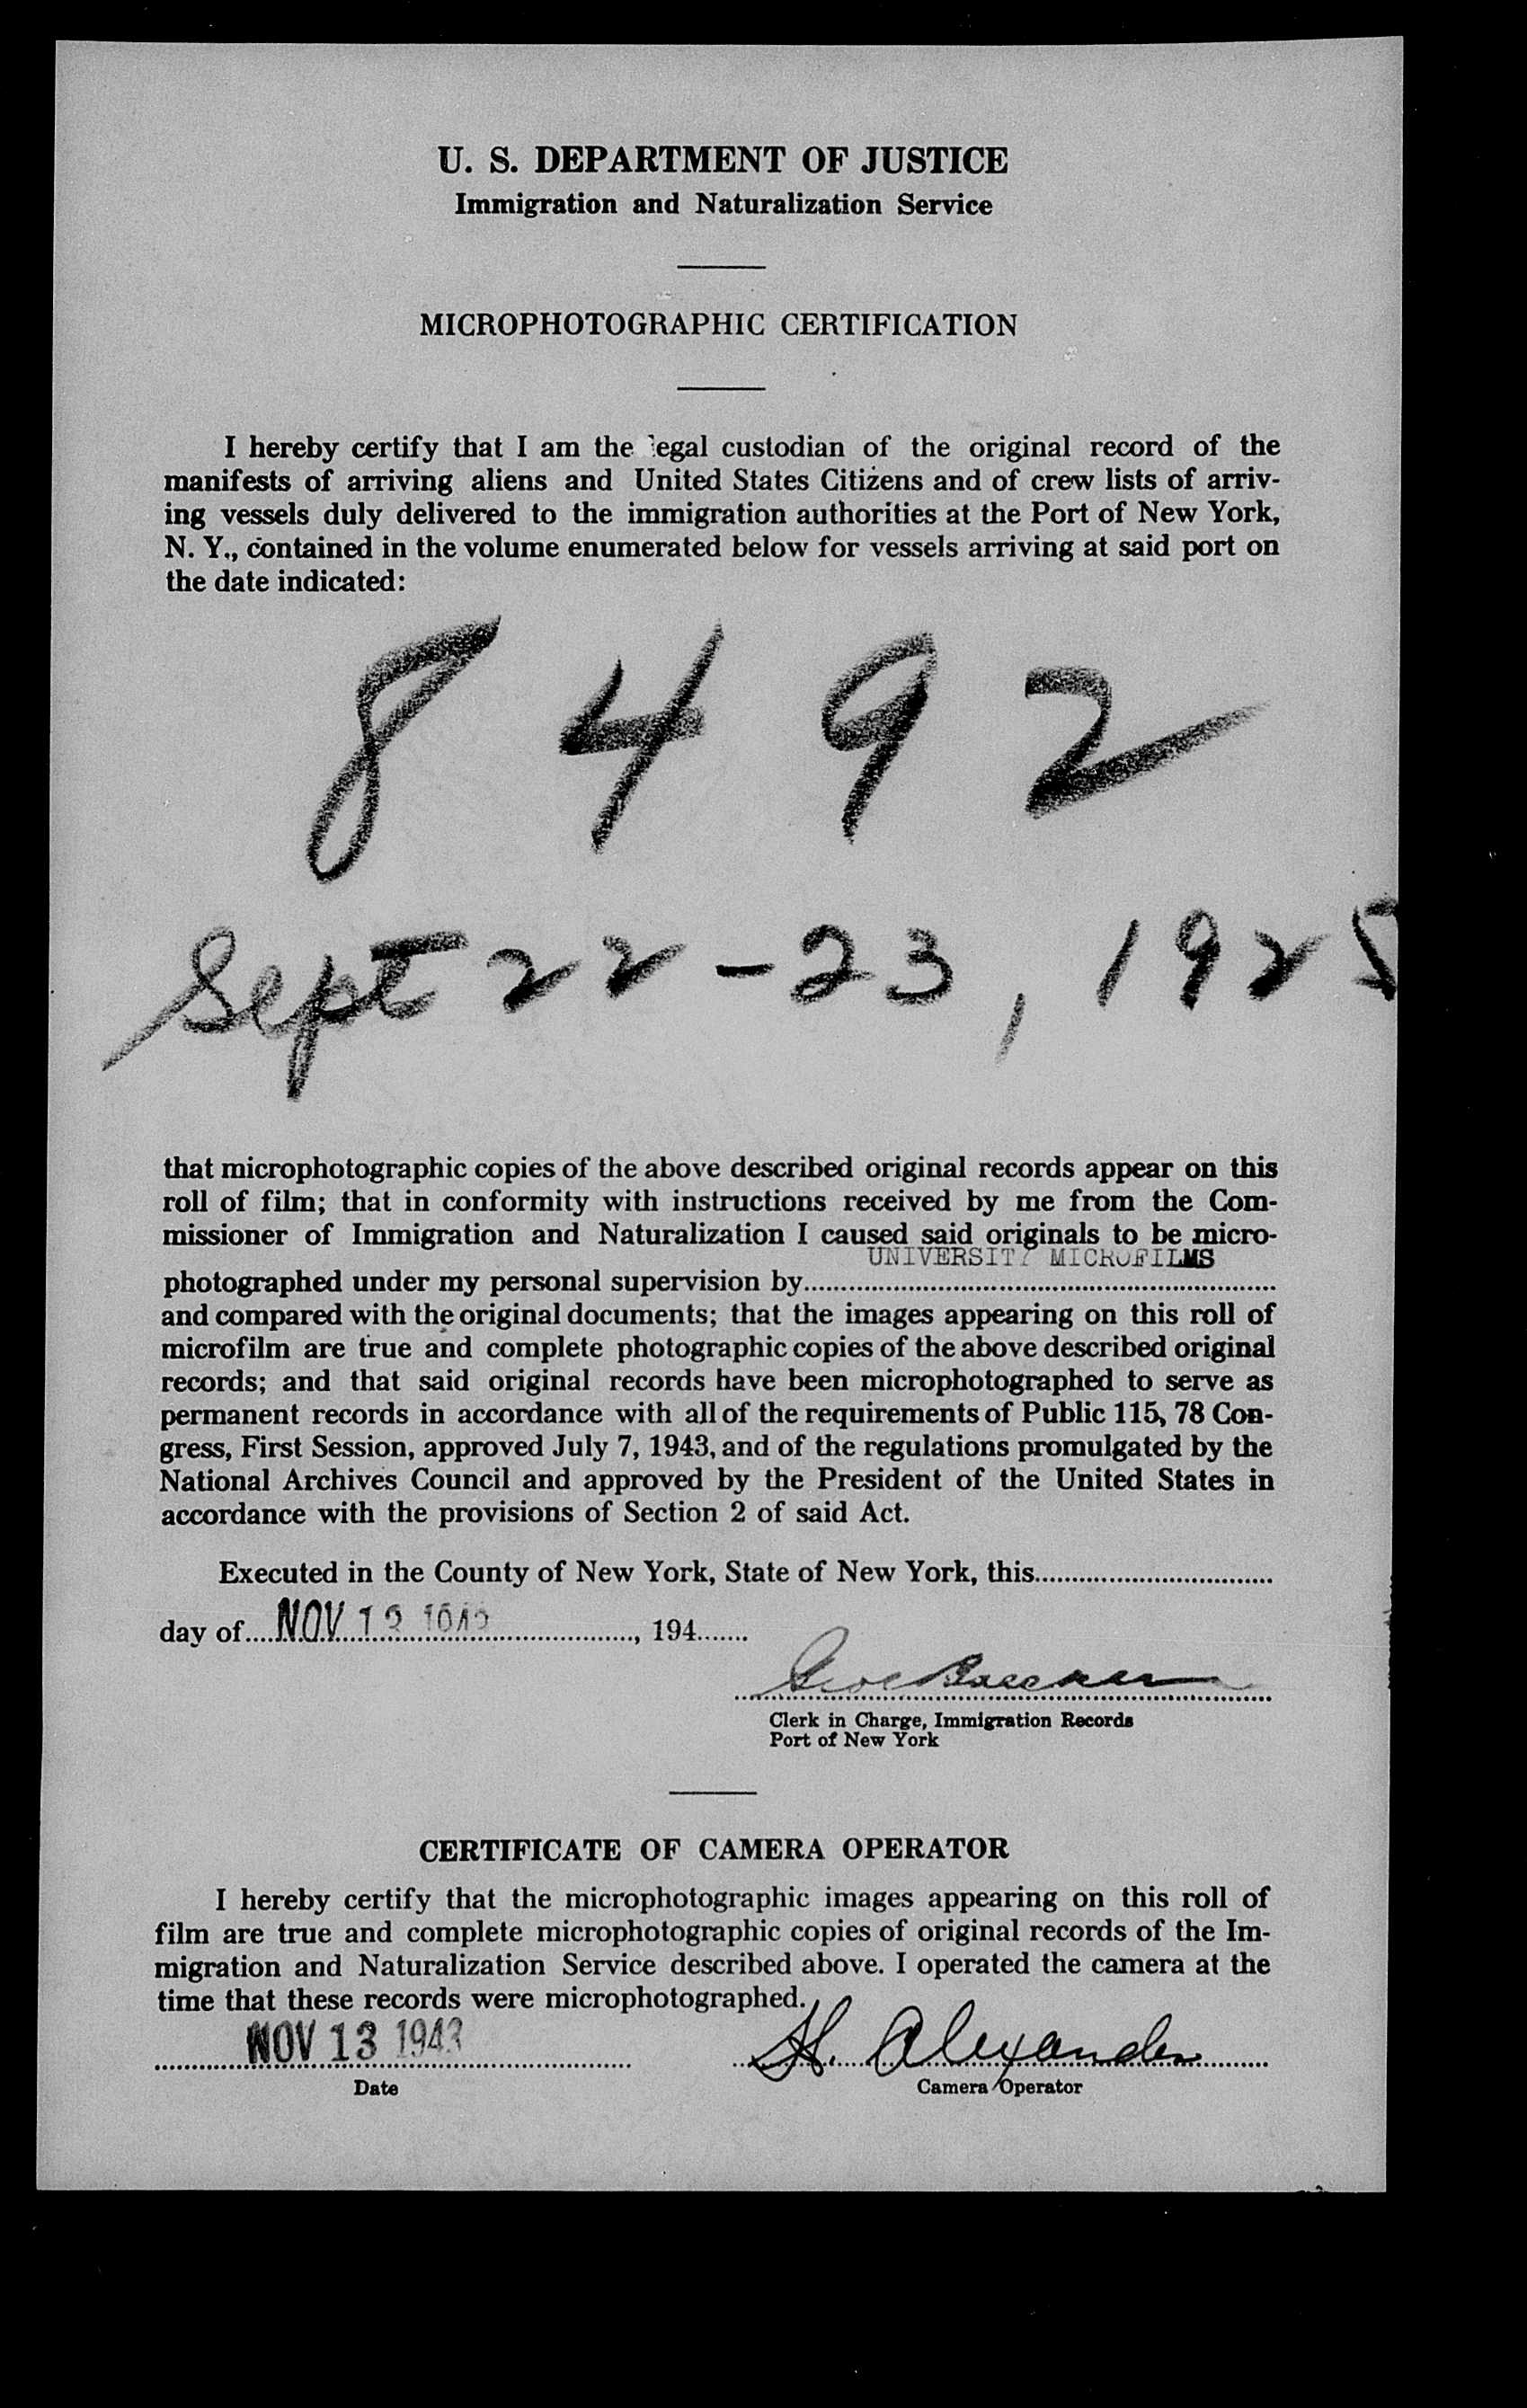 U. S. DEPARTMENT OF JUSTICE
Immigration and Naturalization Service
MICROPHOTOGRAPHIC CERTIFICATION
I hereby certify that I am the legal custodian of the original record of the
manifests of arriving aliens and United States Citizens and of crew lists of arriv-
ing vessels duly delivered to the immigration authorities at the Port of New York,
N. Y., contained in the volume enumerated below for vessels arriving at said port on
the date indicated:
8492
Sept 22-23, 1925
that microphotographic copies of the above described original records appear on this
roll of film; that in conformity with instructions received by me from the Com-
missioner of Immigration and Naturalization I caused said originals to be micro-
UNIVERSITY MICROFILMS
photographed under my personal supervision by
and compared with the original documents; that the images appearing on this roll of
microfilm are true and complete photographic copies of the above described original
records; and that said original records have been microphotographed to serve as
permanent records in accordance with all of the requirements of Public 115, 78 Con-
gress, First Session, approved July 7, 1943, and of the regulations promulgated by the
National Archives Council and approved by the President of the United States in
accordance with the provisions of Section 2 of said Act.
Executed in the County of New York, State of New York, this
day of NOV 13 1943, 194
Clerk in Charge, Immigration Records
Port of New York
CERTIFICATE OF CAMERA OPERATOR
I hereby certify that the microphotographic images appearing on this roll of
film are true and complete microphotographic copies of original records of the Im-
migration and Naturalization Service described above. I operated the camera at the
time that these records were microphotographed.
NOV 13 1943 H. Alexander
Date Camera Operator